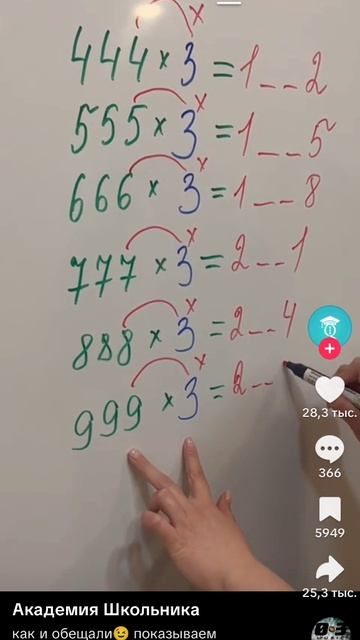 444 × 3 = 1 _ _ 2
555 × 3 = 1 _ _ 5
666 × 3 = 1 _ _ 8
777 × 3 = 2 _ _ 1
888 × 3 = 2 _ _ 4
999 × 3 = 2 _ _
28,3 тыс.
366
5949
25,3 тыс.
Академия Школьника
как и обещали😉 показываем